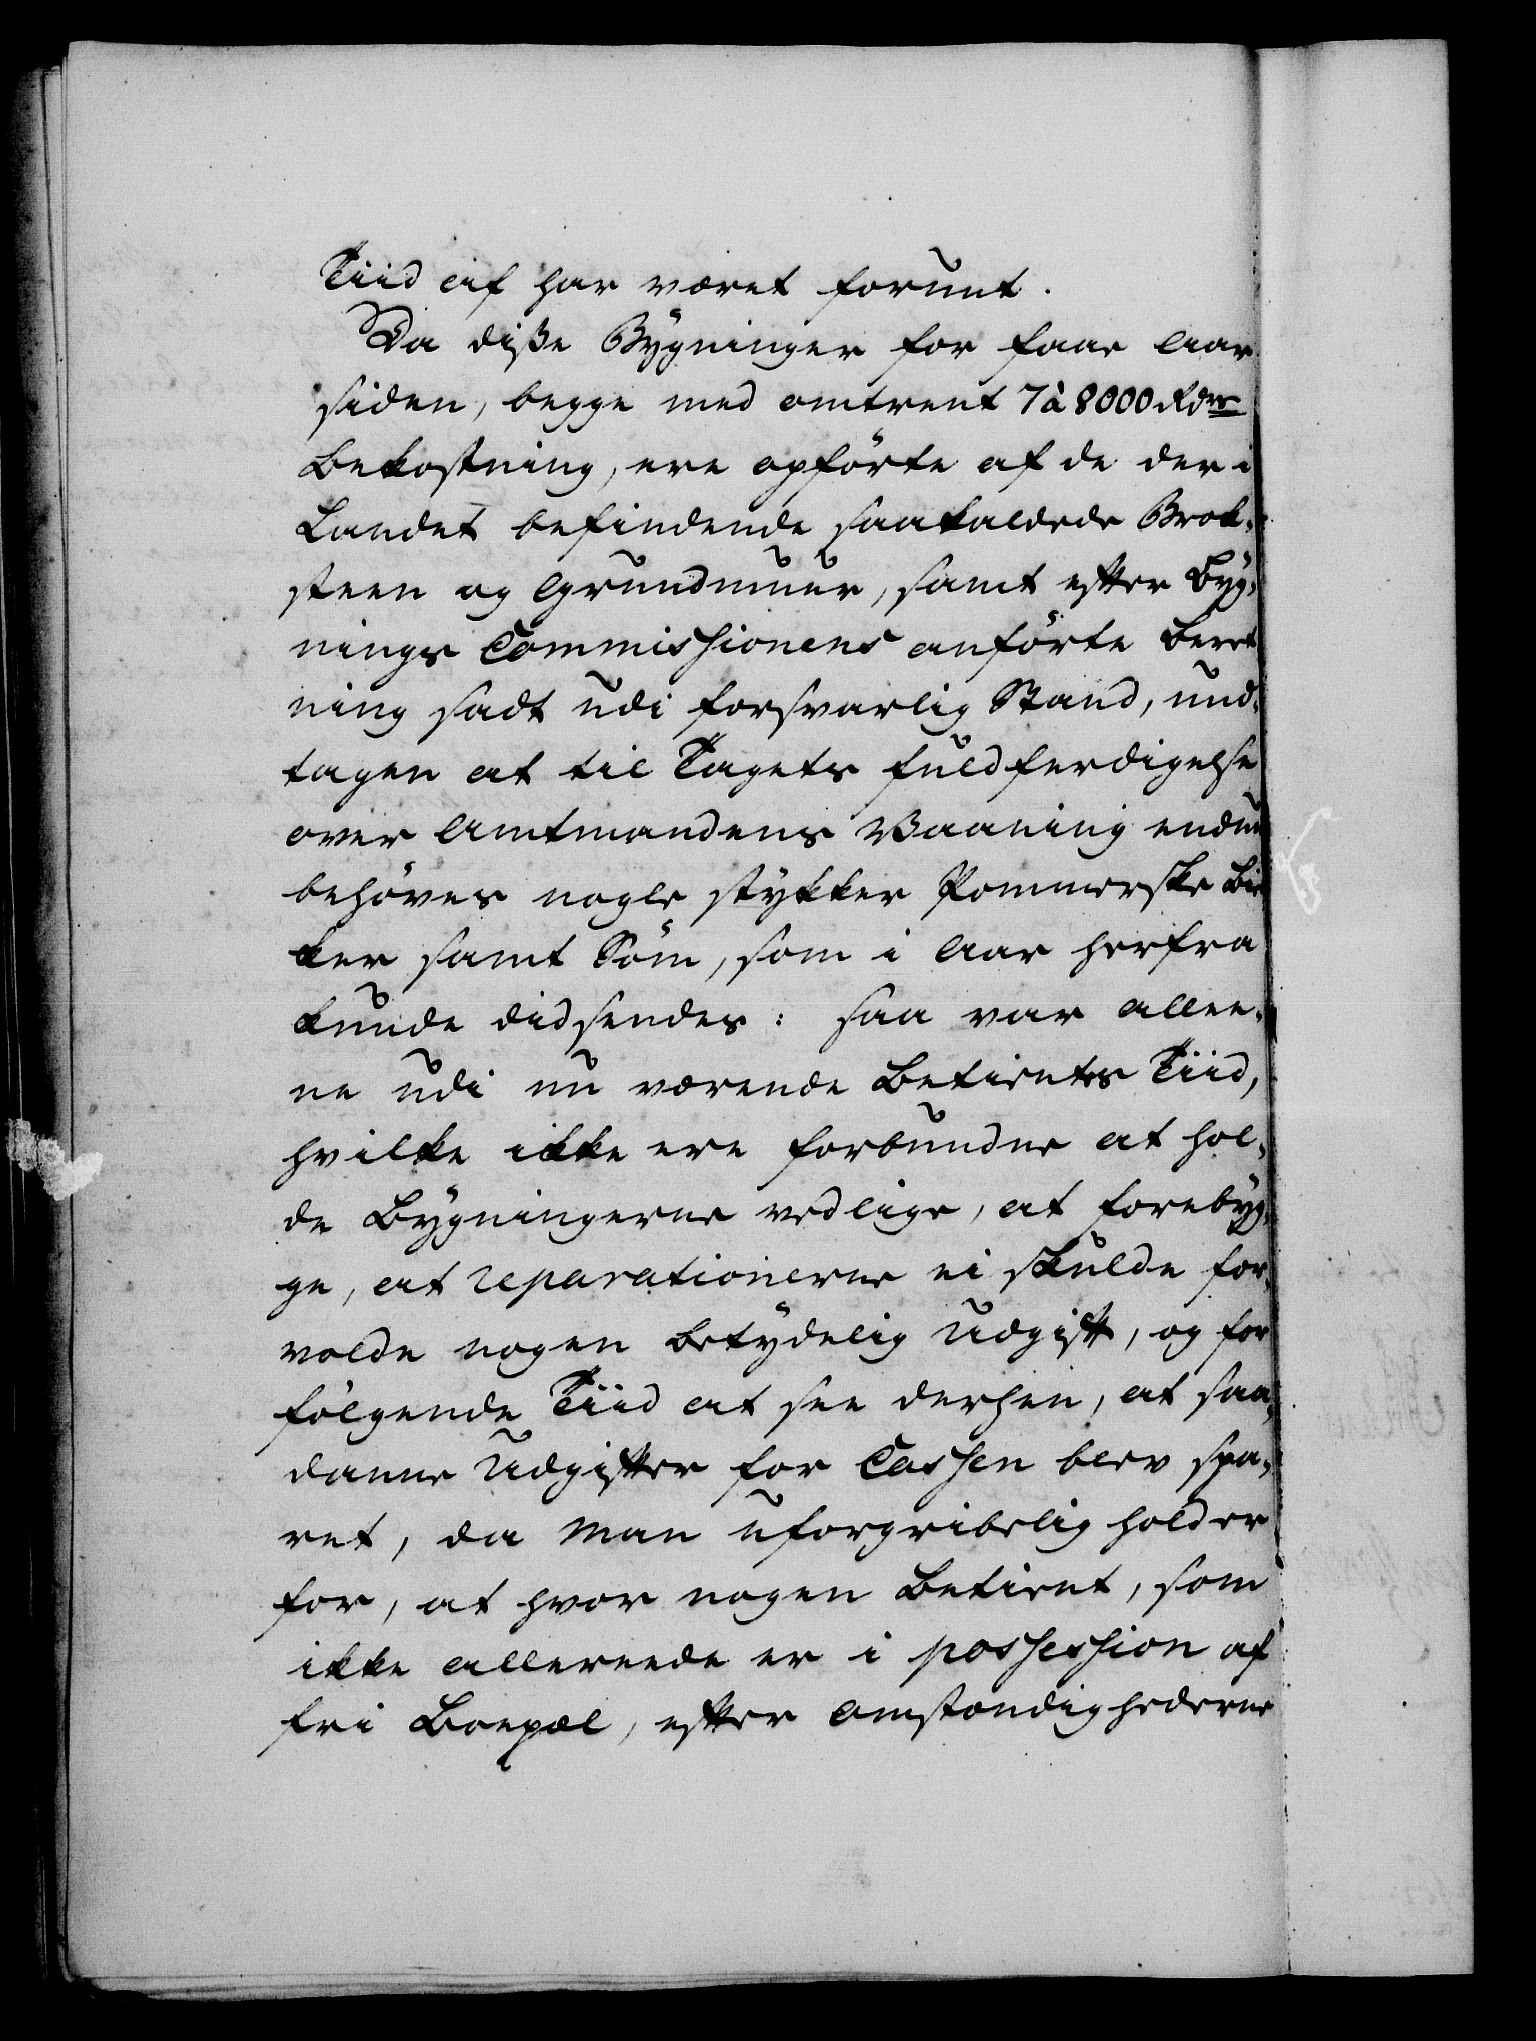 Tiid af har været forunt.
Da diße Bÿgninger for faae Aar
siden, begge med omtrent 7 à 8000 Rdrs
Bekostning, ere opförte af de der i
Landet befindende saakaldede Brok-
steen og Grundmuur, samt efter Bÿg-
nings Commissionens anförte Beret
ning sadt udi forsvarlig Stand, und-
tagen at til Tagets fuldferdigelse
over Amtmandens Vaaning endnu
behöves nogle stÿkker Pommerske Bie
ker samt Söm, som i Aar herfra
kunde didsendes: saa var allee-
ne udi nu værende Betientes Tiid,
hvilke ikke ere forbundne at hol-
de Bÿgningerne vedlige, at forebÿg-
ge, at reparationerne ei skulde for-
volde nogen betÿdelig Udgift, og for
fölgende Tiid at see derhen, at saa-
danne Udgifter for Cassen blev spa-
ret, da man uforgribelig holder
for, at hvor nogen Betient, som
ikke allereede er i possession af
fri Boepæl, efter Omstændighederne